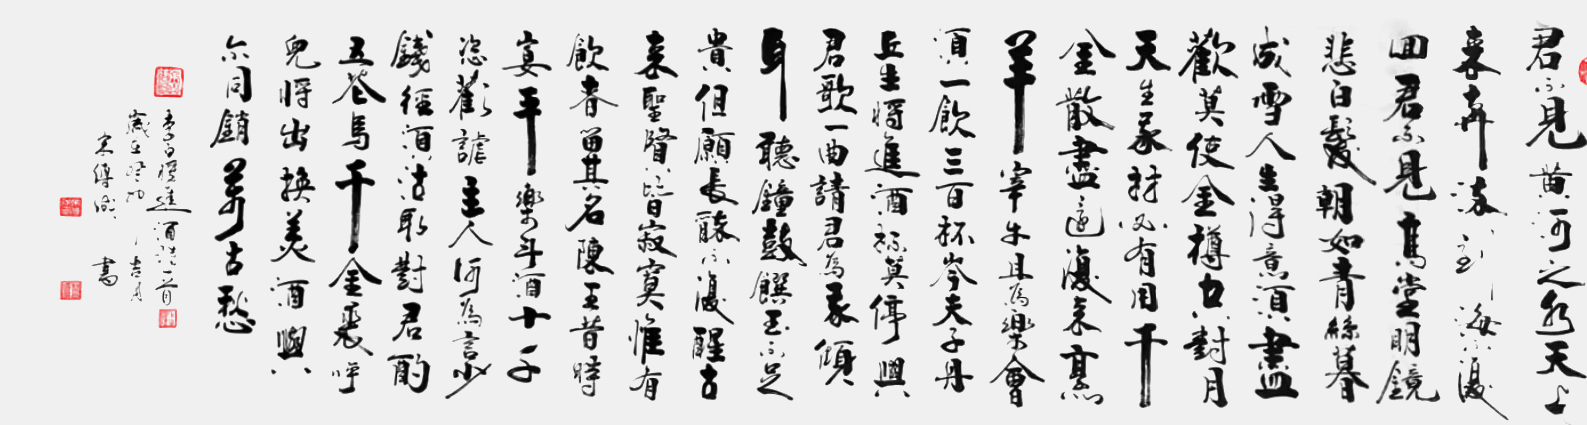 君不見黄河之水天上
来奔流到海不復
回君不見高堂明鏡
悲白髮朝如青絲暮
成雪人生得意須盡
歡莫使金樽空對月
天生我材必有用千
金散盡還復来烹
羊宰牛且為樂會
須一飲三百杯岑夫子丹
丘生將進酒杯莫停與
君歌一曲請君為我傾
耳聽鐘鼓饌玉不足
貴但願長醉不復醒古
来聖賢皆寂寞惟有
飲者留其名陳王昔時
宴平樂斗酒十千
恣歡謔主人何為言少
錢徑須沽取對君酌
五花馬千金裘呼
兒將出換美酒與
尔同銷萬古愁
李白將進酒詩一首
歲在
書